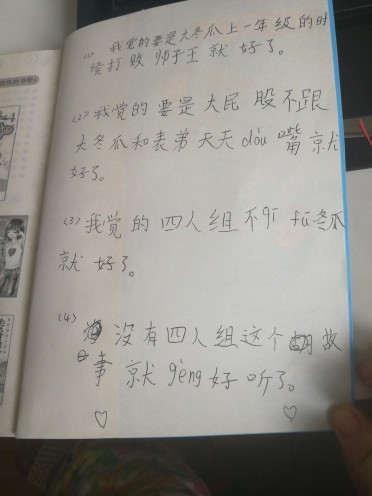 (1) 我觉的要是大冬瓜上一年级的时
候打败狮子王就好了。
(2) 我觉的要是大屁股不跟
大冬瓜和表弟天天dòu嘴就
好了。
(3) 我觉的四人组不qī fū冬瓜
就好了。
(4) 没有四人组这个故
事就gèng好听了。